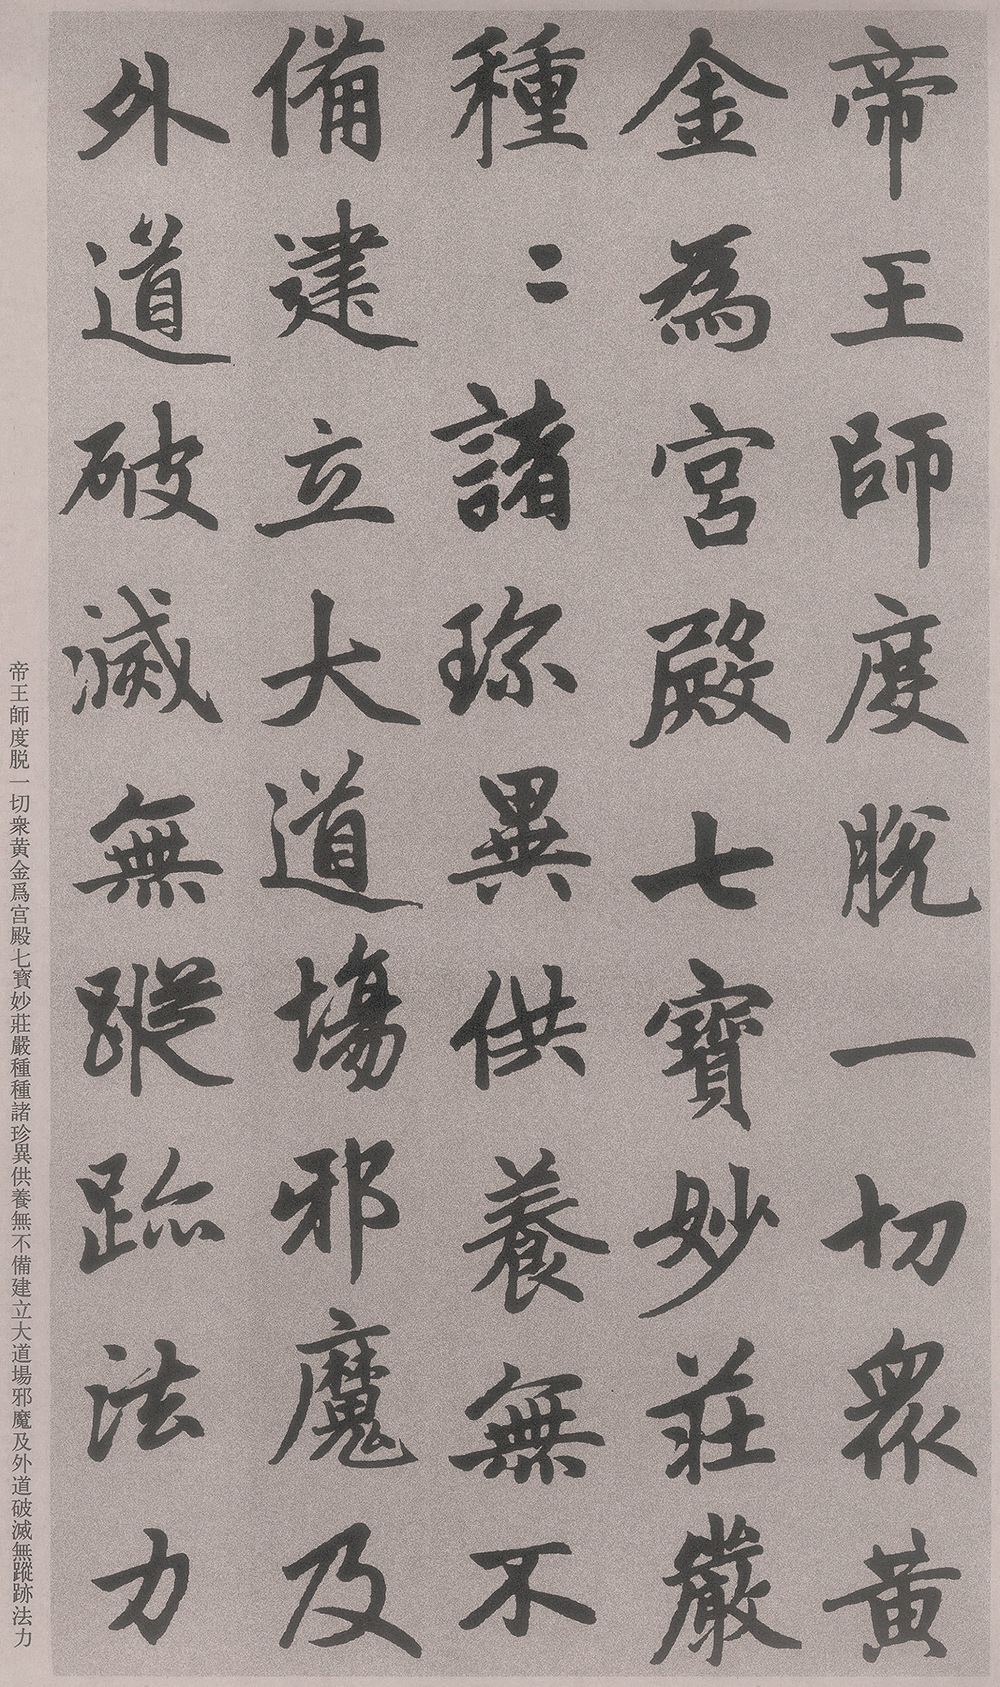 帝王師度脫一切眾黃
金為宮殿七寶妙莊嚴
種〻諸珎異供養無不
備建立大道場邪魔及
外道破滅無蹤跡法力
帝王師度脱一切衆黄金爲宫殿七寳妙莊嚴種種諸珍異供養無不備建立大道場邪魔及外道破滅無蹤跡法力